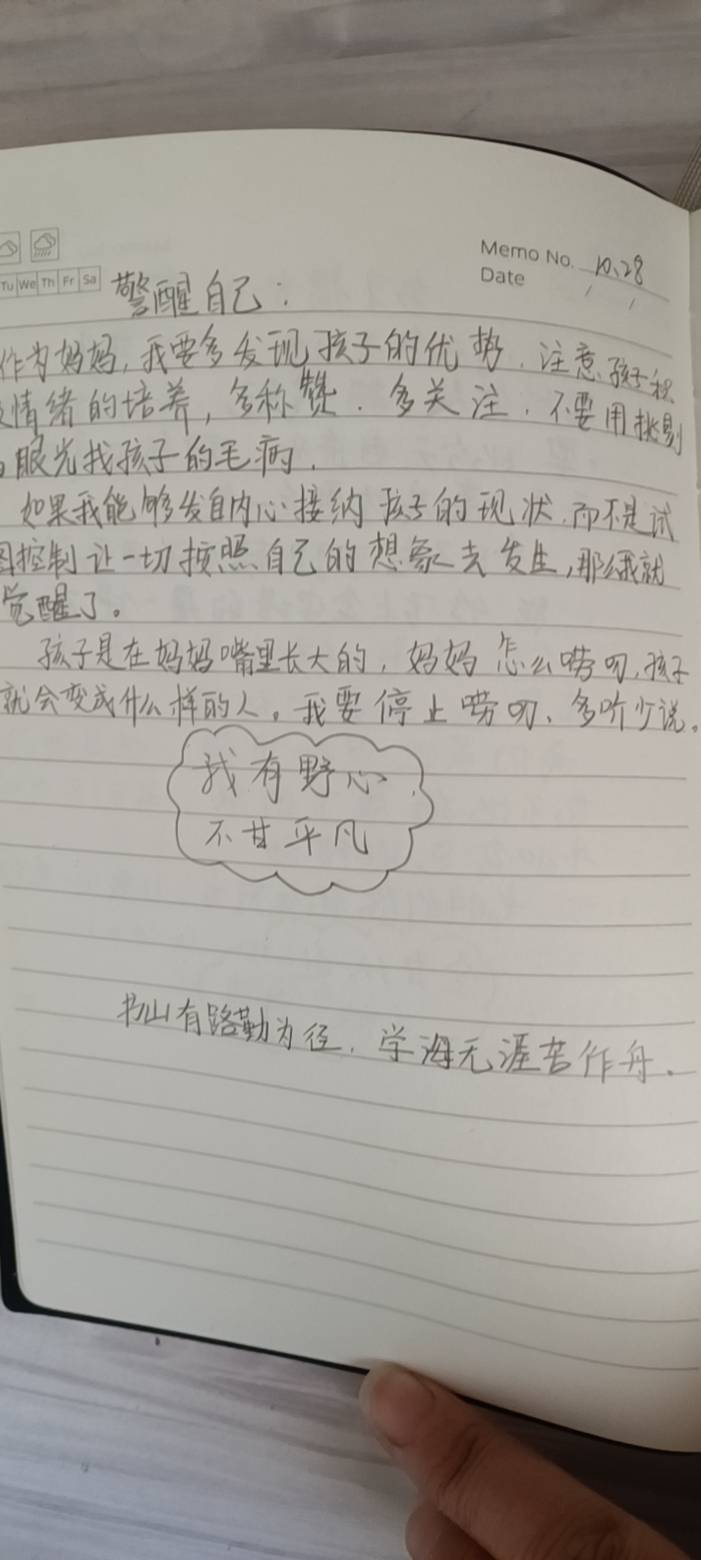 Memo No. 10.28
Date
Tu We Th Fr Sa
警醒自己:
作为妈妈,我要多发现孩子的优势.注意孩子积
情绪的培养,多称赞.多关注.不要用挑剔
眼光找孩子的毛病.
如果我能够发自内心接纳孩子的现状.而不是试
图控制让一切按照自己的想象去发生,那么我就
觉醒了。
孩子是在妈妈嘴里长大的,妈妈怎么唠叨,孩子
就会变成什么样的人。我要停止唠叨、多听少说。
我有野心,
不甘平凡
书山有路勤为径.学海无涯苦作舟.